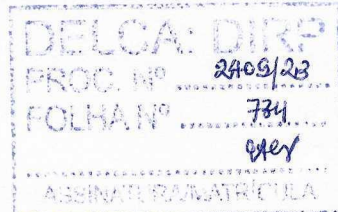 DELCA: DIRP
PROC. Nº 2409/23
FOLHA Nº 774
ASSINATURA/MATRÍCULA